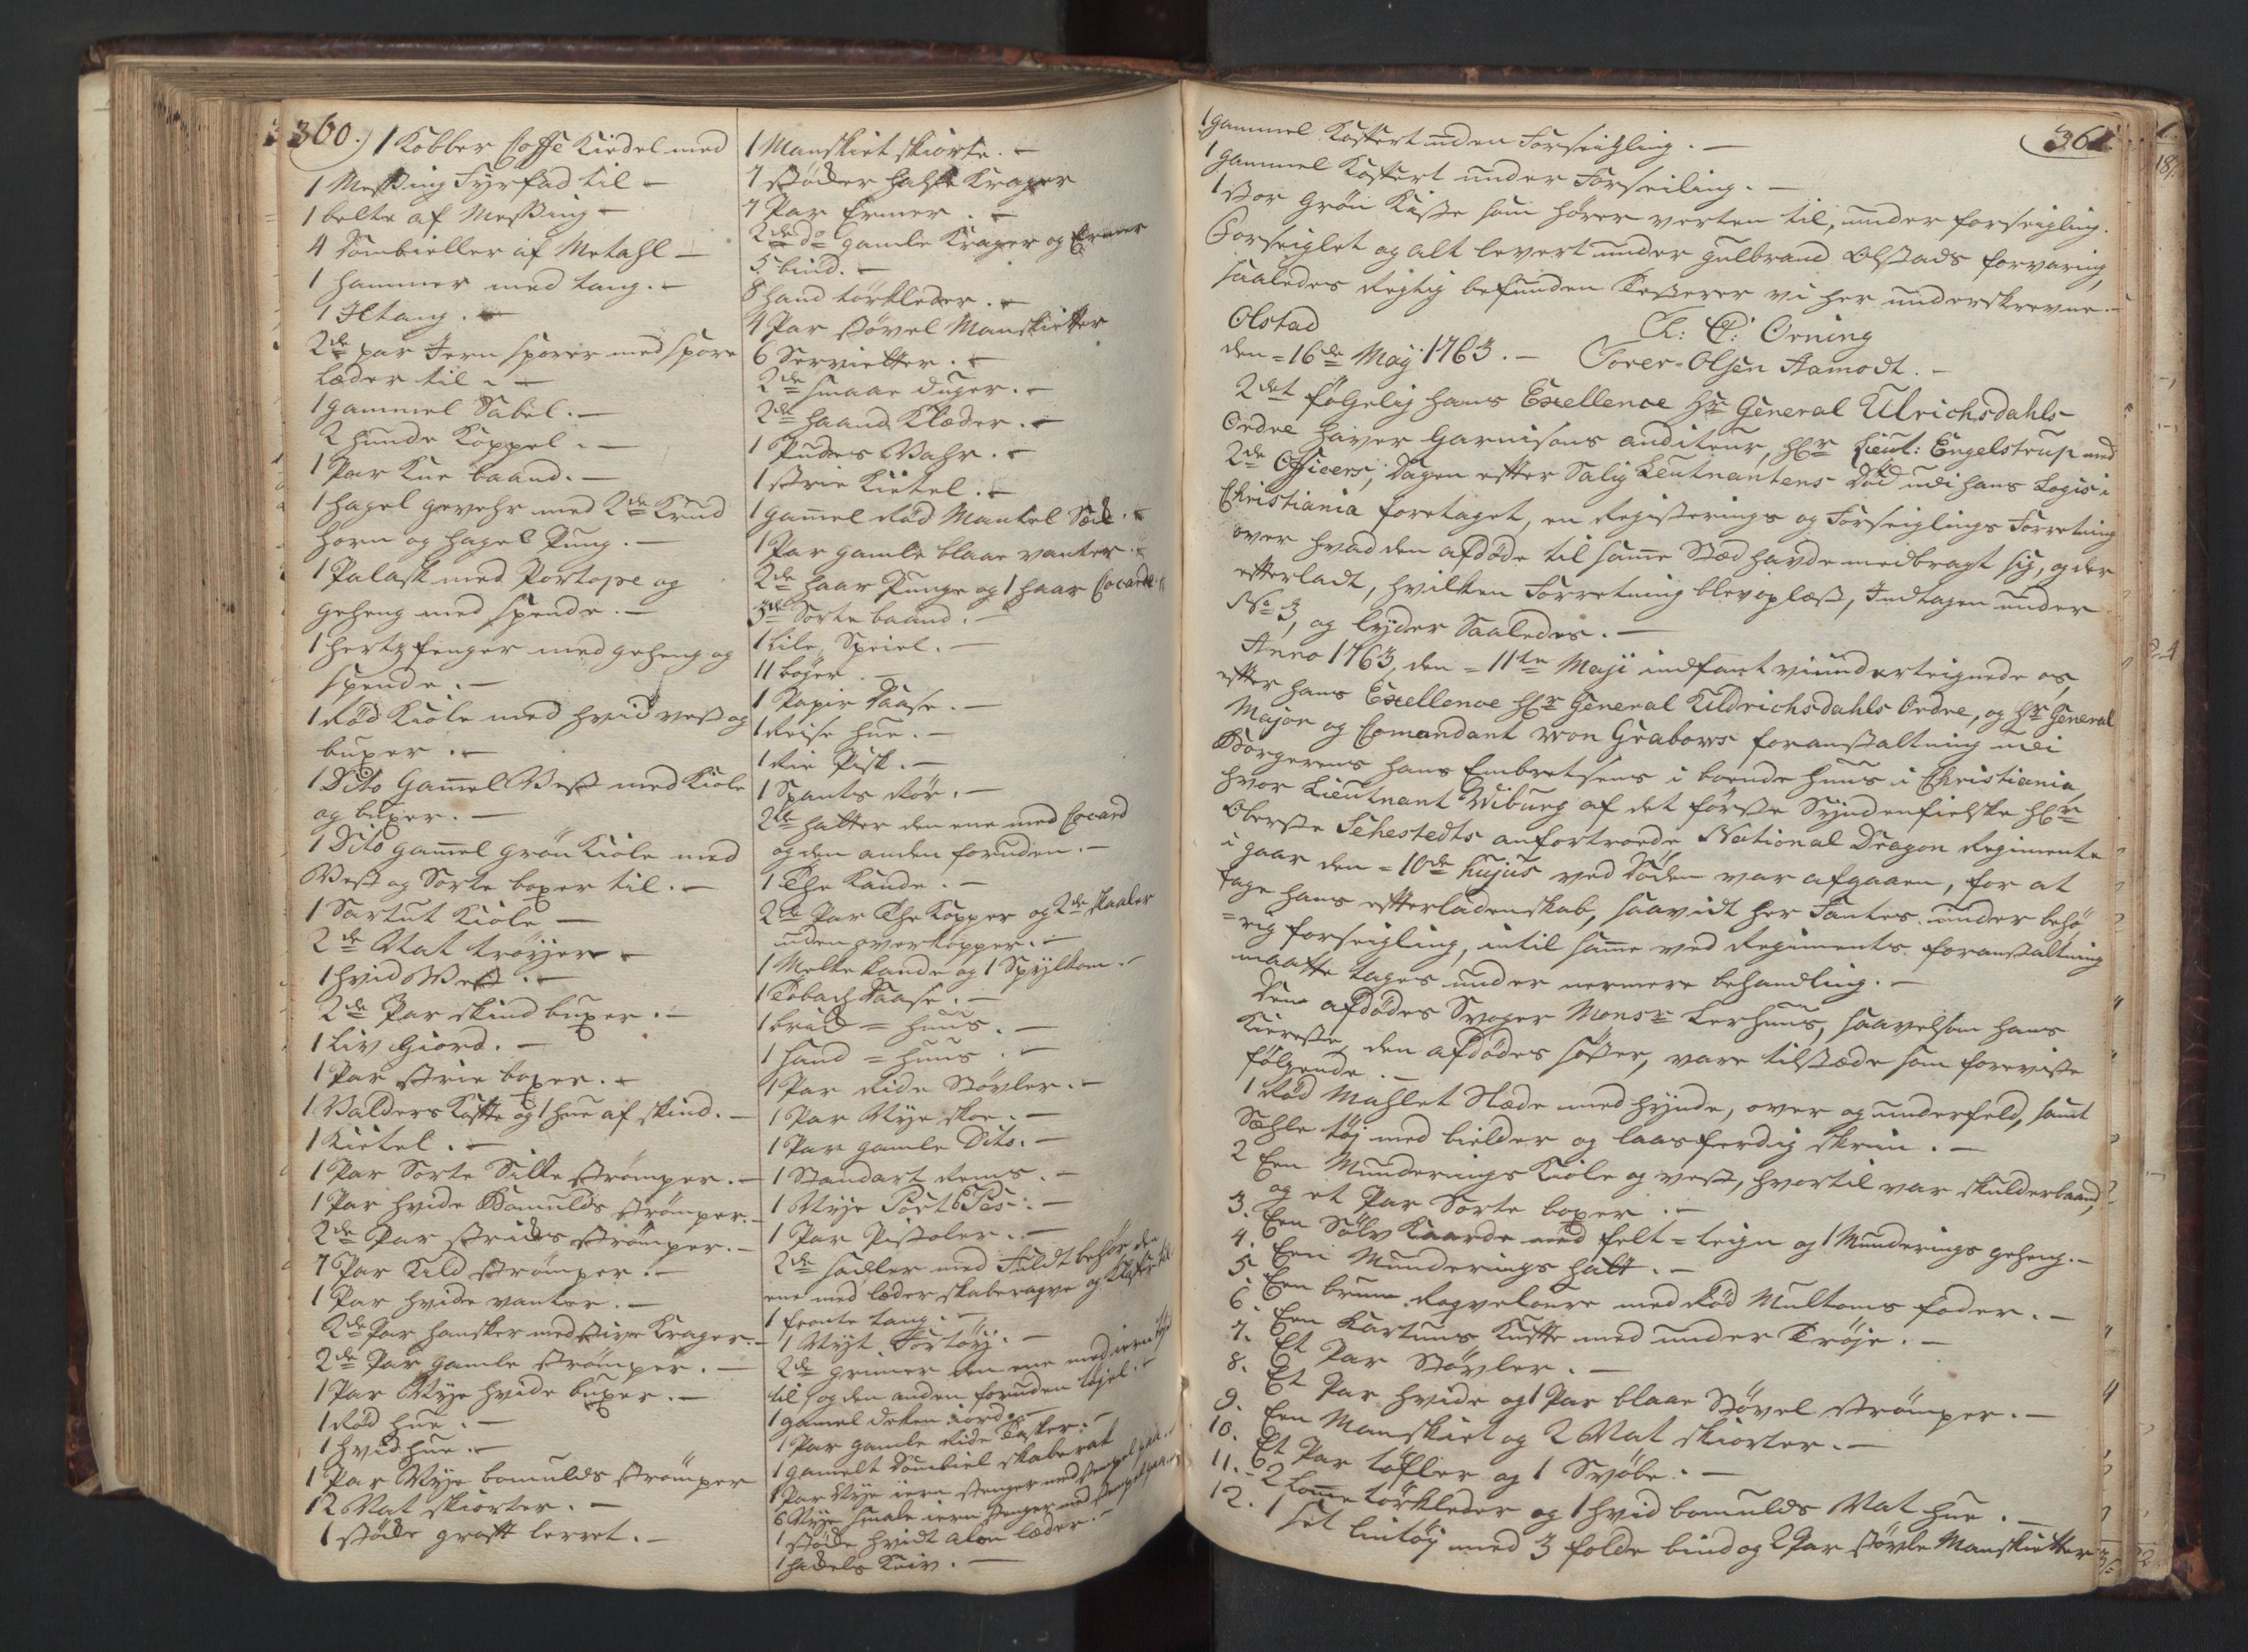 360.) 1 Kobber Coffe Kiedel med
1 Messing Fyrfad til –
1 belte af Messing –
4 Dombieller af Metahl –
1 hammer med tang. –
1 Iltang. –
2de par Jern sporer med spore
Læder til. –
1 gammel Sabel. –
2 hunde Koppel. –
1 Par Knæ baand. –
1 hagel gevehr med 2de Krud
horn og hagel Pung. –
1 Palask med Portope og
geheng med spende. –
1 hertzfenger med geheng og
spende. –
1 Rød Kiole med hvid vest og
buxer. –
1 Dito Gammel Vest med Kiole
og buxer. –
1 Dito gammel grøn Kiole med
Vest og Sorte boxer til. –
1 Sartut Kiole –
2de Nat trøyer –
1 hvid Vest. –
2de Par skind buxer. –
1 Liv Giord. –
1 Par strie boxer. –
1 Valders Kofte og 1 hue af skind. –
1 Kietel. –
1 Par Sorte Silke strømper. –
1 Par hvide Bomulds strømper. –
2de Par strikes strømper. –
7 Par Uld strømper. –
1 Par hvide vanter. –
2de Par hansker med stive Krager. –
2de Par gamle strømper. –
1 Par Nye hvide buxer. –
1 Rød hue. –
1 hvid hue. –
1 Par Nye bomulds strømper
12 Nat skiorter. –
1 støcke groft lerret. –
1 Manskiet skiorte. –
7 støcker halse Krager
7 Par Ermer. –
2de do gamle Krager og Ermer
5 bind. –
8 hand tørkleder. –
4 Par støvel Manskietter
6 Servietter. –
2de smaae duger. –
2de haand Klæder. –
1 Pudes Vahr. –
1 strie Kietel. –
1 gammel Rød Mantel Sæk. –
1 Par gamle blaae vanter. –
2de haar Punge og 1 haar Cocarde
3de Sorte baand. –
1 Lile Speiel. –
11 bøger. –
1 Papir Daase. –
1 Reise hue. –
1 Rie Pisk. –
1 Spansk Rør. –
2de hatter den ene med Cocard
og den anden foruden. –
1 The Kande. –
2de Par The Kopper og 2de skaaler
uden overkopper. –
1 Melke kande og 1 Spylkom. –
1 Tobach Daase. –
1 brid = huus. –
1 sand = huus. –
1 Par Ride Støvler. –
1 Par Nye skoe. –
1 Par gamle Dito. –
1 Standart Rems. –
1 Nye Port E Pes. –
1 Par Pistoler. –
2de sadler med Fuldt behør den
ene med læder skaberaqve og
1 tang. –
1 Nyt Fortøy. –
2de grimer den ene med
til og den anden foruden tøjel. –
1 gamel deken iord. –
1 Par gamle Ride Tasker. –
1 gamelt Dombiel skaberak
1 Par Nye iern stenger med stempel paa. –
6 Nye smale iern stenger med stempel paa. –
1 støcke hvidt alen læder. –
1 hackels Kniv. –
361
1 gammel Koffert uden Forseigling. –
1 gammel Koffert under Forseiling. –
1 stor grøn Kiste som hører verten til, under forseigling.
Forseiglet og alt levert under Gulbrand Olstads forvaring,
saaledes Rigtig befunden Testerer vi her underskrevne. –
Olstad
den = 16de Maÿ 1763. –
Ch: C: Orning
Torer Olsen Aamodt. –
2det følgelig hans Excellence Hr General Ulrichsdahls
Ordre haver Garnisons auditeur, Hr Lieut: Engelstrup med
2de Officers, dagen efter Salig Leutnantens Død udi hans Logis i
Christiania foretaget, en Registerings og Forseiglings Forretning
over hvad den afdøde til samme Stæd havde medbragt sig, og der
efterladt, hvilken Forretning blev oplæst, Indtagen under
No 3, og lyder Saaledes. –
Anno 1763, den = 11te Maji indfant vi underteignede os,
efter hans Excellence Hr General Ulldrichsdahls Ordre, og Hr General
Major og Comandant von Grabows foranstaltning udi
Borgerens hans Embretsens i boende huus i Christiania,
hvor Lieutnant Wiburg af det første Syndenfielske Hr
Oberste Sehestedts anfortroede National Dragon Regimente
i gaar den = 10de hujus ved døden var afgaaen, for at
tage hans efterladenskab, saavidt her Fantes under behø
= rig forseigling, intil samme ved Regiments foranstaltning
maatte tages under nermere behandling. –
Den afdødes Svoger Monsr Lerhuus, saavelsom hans
Kiereste, den afdødes søster, vare tilstæde som foreviste
følgende. –
1 Rød Mahlet Slæde med hynde, over og underfeld, samt
Sæhle tøj med bielder og laasferdig skrin. –
2 Een Munderings Kiole og vest, hvortil var skulderbaand,
og et Par Sorte boxer. –
3. Een Sølv Kaarde med felt = teign og 1 Munderings geheng. –
4. Een Munderings hatt. –
5. Een brun Roqvelour med Rød Multoms foder. –
6. Een Kartuns Kufte med under Trøje. –
7. Et Par Støvler. –
8. Et Par hvide og 1 Par blaae Støvel strømper. –
9. Een Manskiet og 2 Nat skiorter. –
10. Et Par tøfler og 1 Svøbe. –
11. – 2 Lomme tørkleder og 1 hvid bomulds Nat hue. –
12. 1 set lintøy med 3 folde bind og 2 Par støvle Manskietter